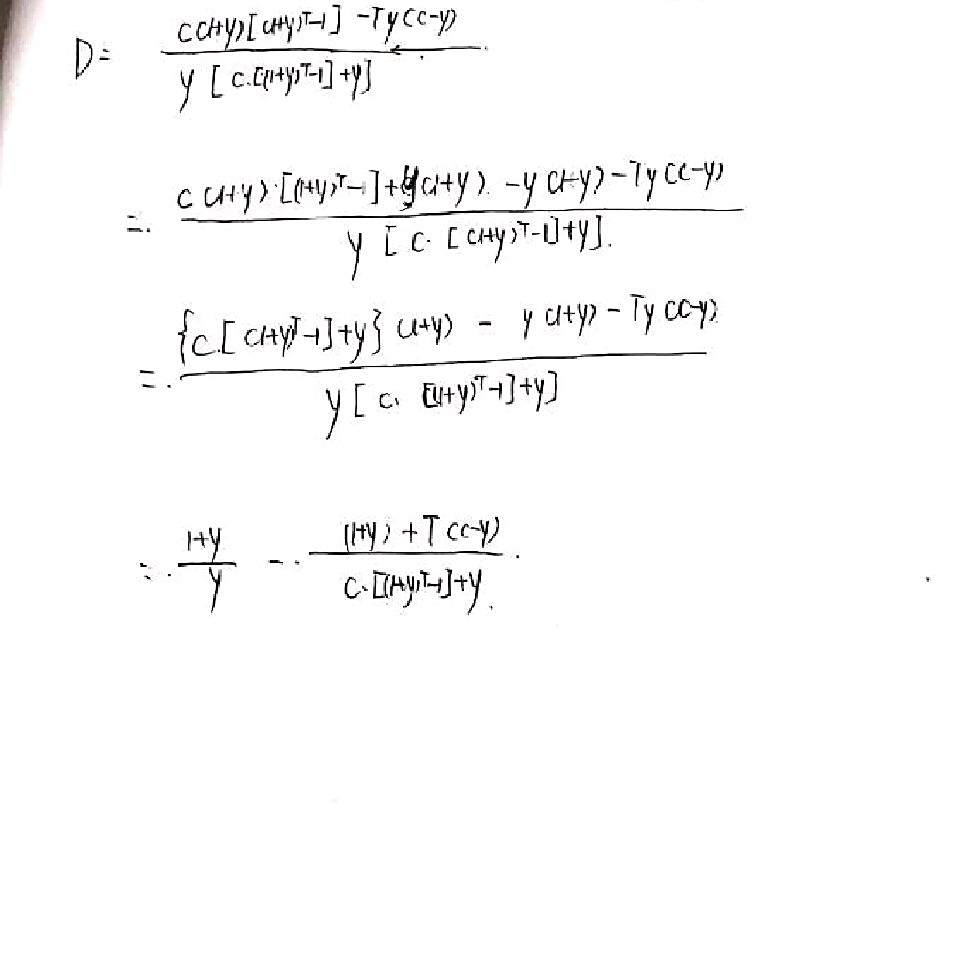 D = \frac{c(1+y)[(1+y)^T-1] - Ty(c-y)}{y[c \cdot [(1+y)^T-1]+y]}
= \frac{c(1+y) \cdot [(1+y)^T-1] + y(1+y) - y(1+y) - Ty(c-y)}{y[c \cdot [(1+y)^T-1]+y]}
= \frac{\{c \cdot [(1+y)^T-1]+y\}(1+y) - y(1+y) - Ty(c-y)}{y[c \cdot [(1+y)^T-1]+y]}
= \frac{1+y}{y} - \frac{(1+y)+T(c-y)}{c \cdot [(1+y)^T-1]+y}